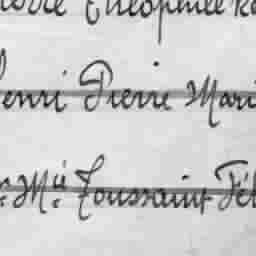 Théophile
Henri Pierre Mari
Mie Toussaint Fél